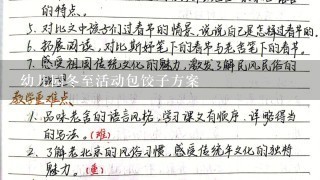 的特点。
5. 对比文中孩子们过春节的情景,说说自己是怎样过春节的。
6. 拓展阅读,对比斯妤笔下的春节与老舍笔下的春节。
7. 感受祖国传统文化的魅力,激发了解民风民俗的
幼儿园冬至活动包饺子方案
教学重难点
1. 品味老舍的语言风格,学习课文有顺序、详略得当
的写法。(难)
2. 了解老北京的风俗习惯,感受传统年文化的独特
魅力。(重)